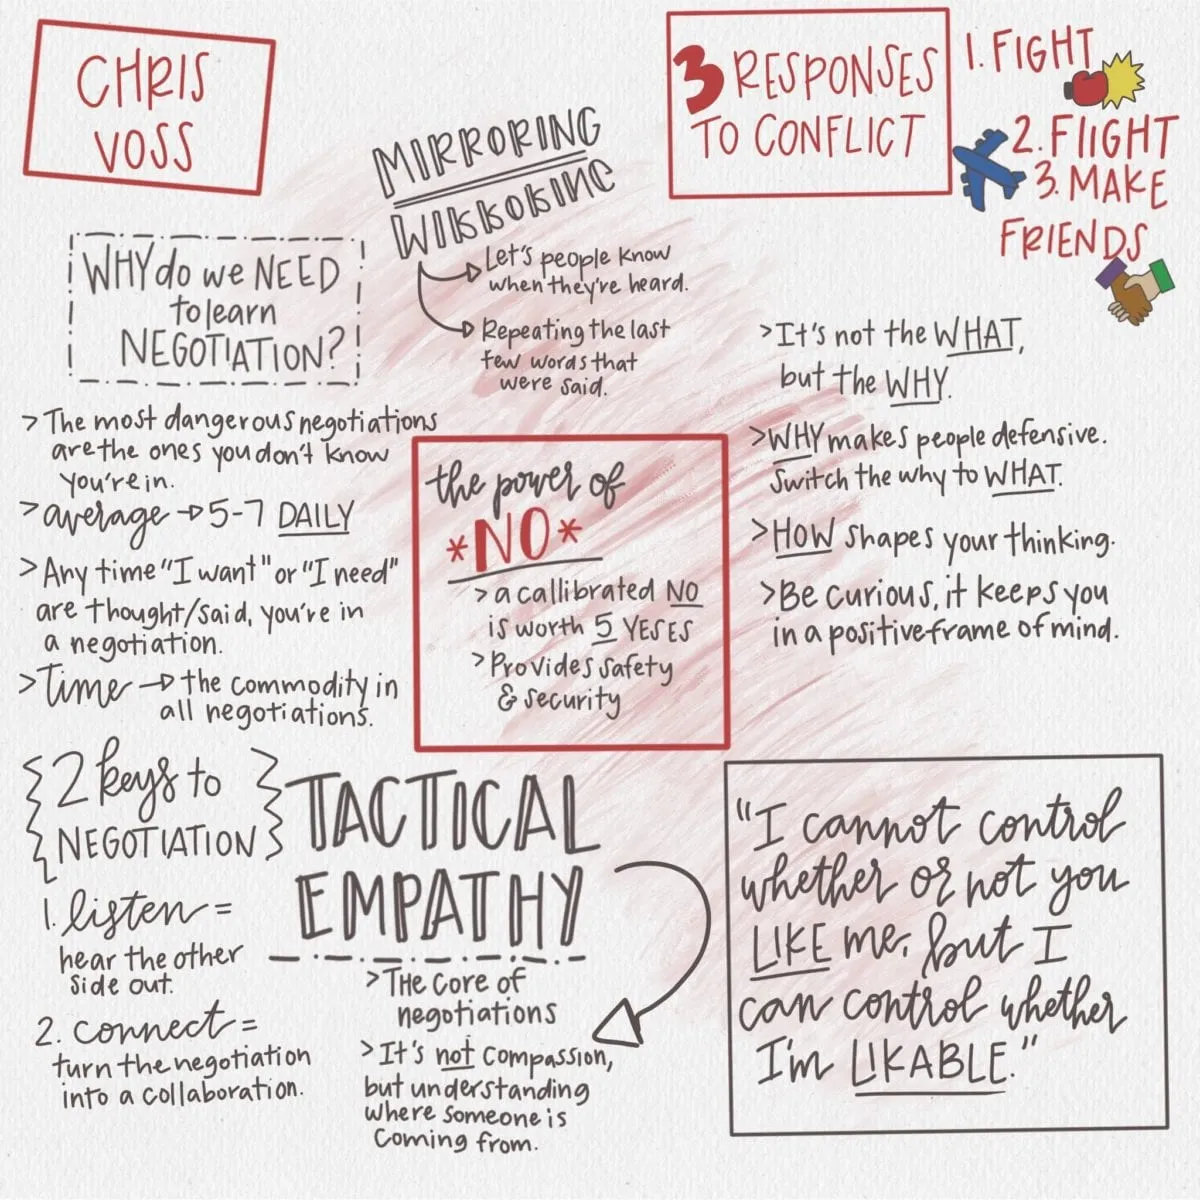 CHRIS
VOSS
MIRRORING
MIRRORING
Let's people know
when they're heard.
Repeating the last
few words that
were said.
3 RESPONSES
TO CONFLICT
1. FIGHT
2. FlIGHT
3. MAKE
FRIENDS
WHY do we NEED
to learn
NEGOTIATION?
> The most dangerous negotiations
are the ones you don't know
you're in.
> average → 5-7 DAILY
> Any time "I want" or "I need"
are thought/said, you're in
a negotiation.
> Time → the commodity in
all negotiations.
the power of
*NO*
> a callibrated NO
is worth 5 YESES
> Provides safety
& security
> It's not the WHAT,
but the WHY.
> WHY makes people defensive.
Switch the why to WHAT.
> HOW shapes your thinking.
> Be curious, it keeps you
in a positive frame of mind.
2 keys to
NEGOTIATION
1. listen =
hear the other
side out.
2. connect =
turn the negotiation
into a collaboration.
TACTICAL
EMPATHY
> The core of
negotiations
> It's not compassion,
but understanding
where someone is
coming from.
"I cannot control
whether or not you
LIKE me, but I
can control whether
I'm LIKABLE."